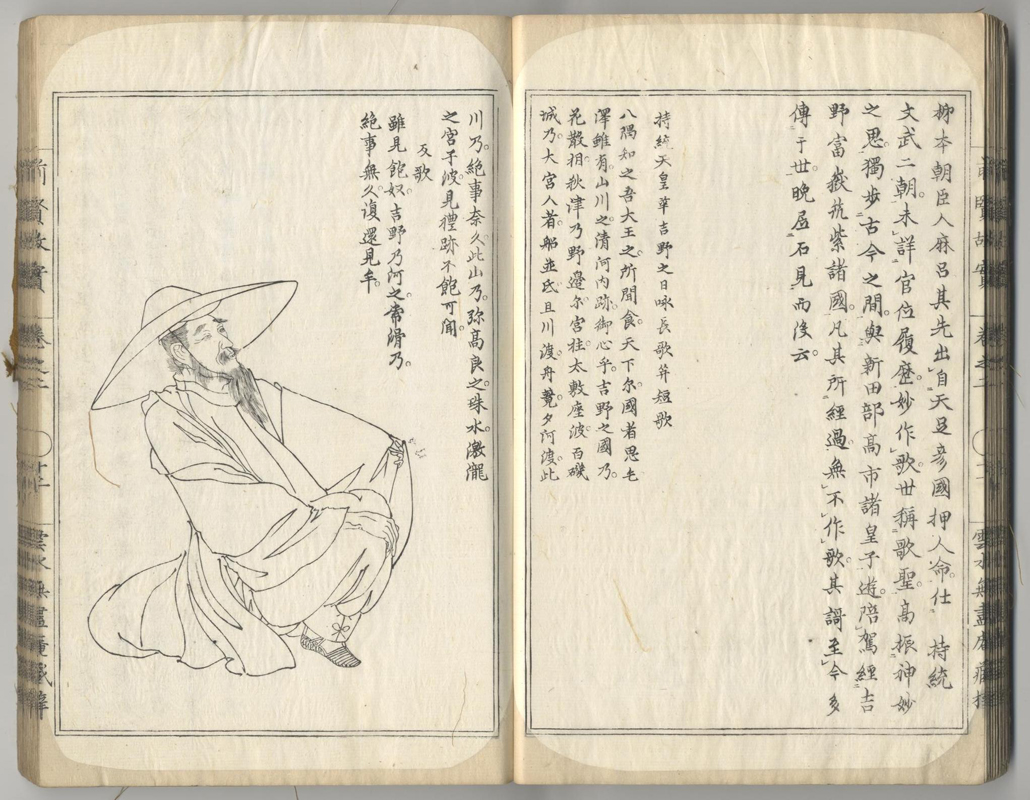 柳本朝臣人麻呂其先出自天足彦國押人命仕　持統
文武二朝未詳官位履歴妙作歌世稱歌聖高振神妙
之思獨歩古今之間與新田部高市諸皇子遊陪駕經吉
野富嶽筑紫諸國凡其所經過無不作歌其謌至今多
傳于世晩居石見而没云
持統天皇幸吉野之日咏長歌并短歌
八隅知之吾大王之所聞食天下尓國者思毛
澤雖有山川之清河内跡御心乎吉野之國乃
花散相秋津乃野邊尓宮柱太敷座波百磯
城乃大宮人者船並氐旦川渡舟競夕河渡此
川乃絶事奈久此山乃弥高良之珠水激瀧
之宮子波見禮跡不飽可聞
反歌
雖見飽奴吉野乃河之常滑乃
絶事無久復還見牟